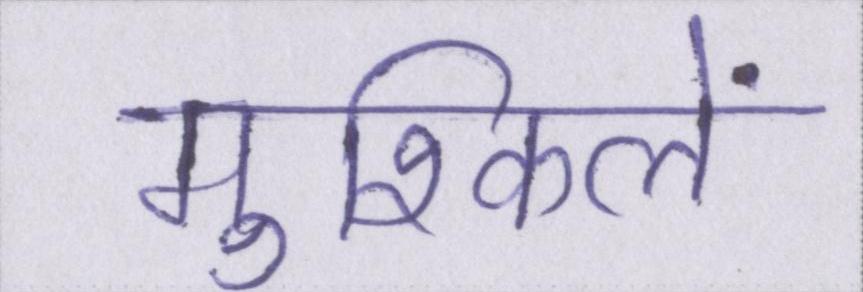 मुश्किलें